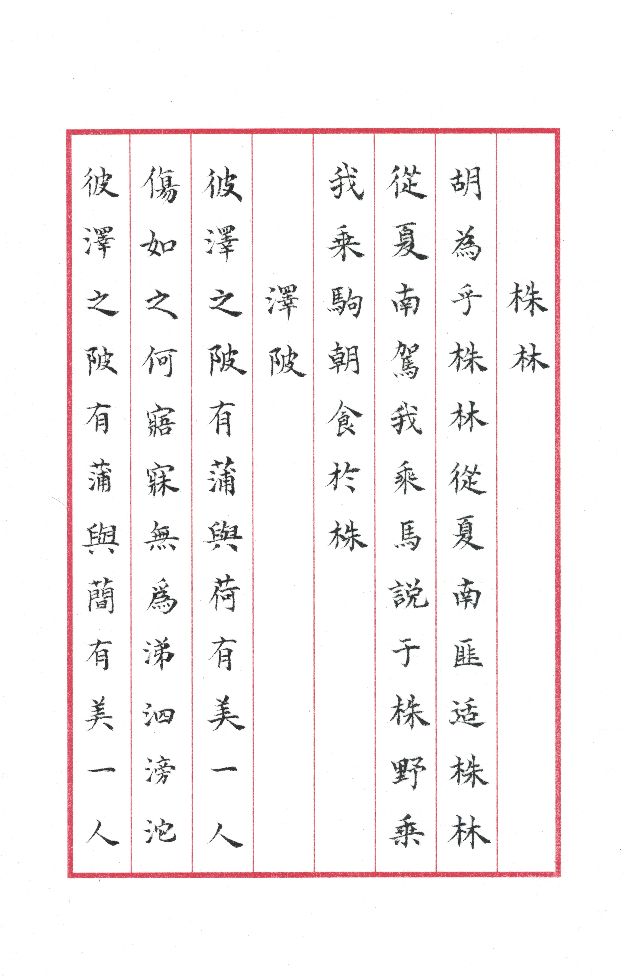 株林
胡為乎株林從夏南匪适株林
從夏南駕我乘馬説于株野乗
我乘駒朝食於株
澤陂
彼澤之陂有蒲與荷有美一人
傷如之何寤寐無爲涕泗滂沱
彼澤之陂有蒲與蕳有美一人